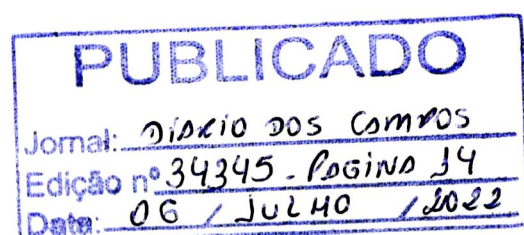 PUBLICADO
Jornal: DIÁRIO DOS CAMPOS
Edição nº 34345 - PAGINA 14
Data: 06 / JULHO / 2022